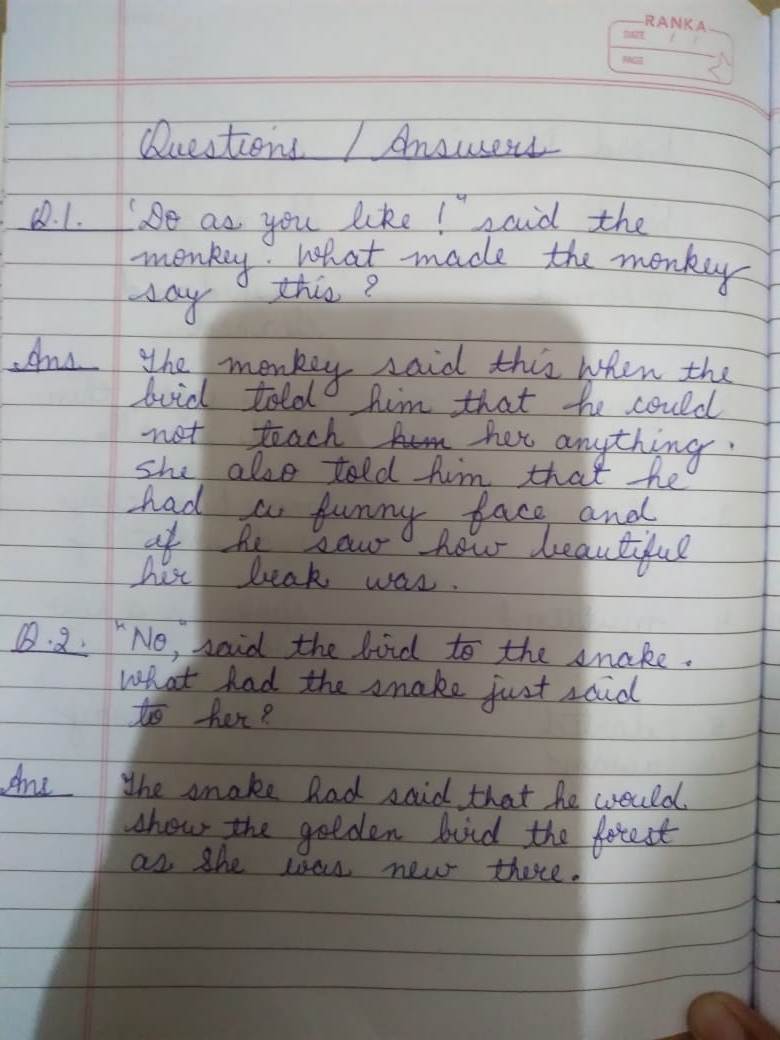 RANKA
DATE / /
PAGE
Questions / Answers
Q.1. "Do as you like!" said the
monkey. What made the monkey
say this?
Ans The monkey said this when the
bird told him that he could
not teach him her anything.
She also told him that he
had a funny face and
if he saw how beautiful
her beak was.
Q.2. "No," said the bird to the snake.
What had the snake just said
to her?
Ans The snake had said that he would
show the golden bird the forest
as she was new there.